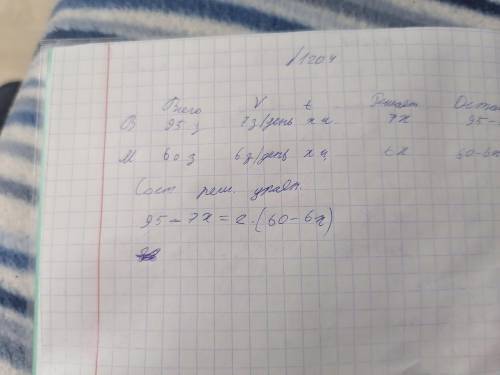 №1204
Всего V t Решает Оста
В 95 з 7з/день х ч 7х 95 -
М 60 з 6з/день х ч 6х 60-6х
Сост реш. уравн.
95 - 7х = 2·(60 - 6х)